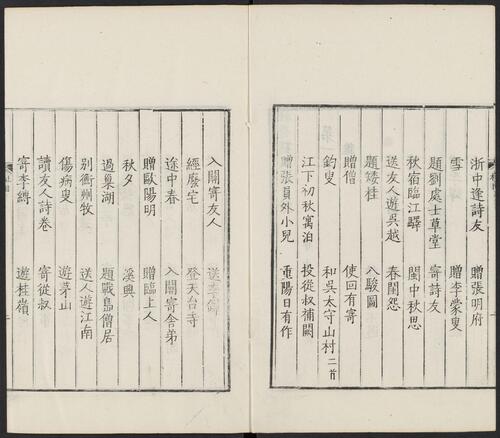 浙中逢詩友 贈張明府
雪 贈李蒙叟
題劉處士草堂 寄詩友
秋宿臨江驛 閨中秋思
送友人遊吳越 春閨怨
題矮桂 八駿圖
贈僧 使回有寄
釣叟 和吳太守山村二首
江下初秋寓泊 投從叔補闕
贈張員外小兒 重陽日有作
入關寄友人
經廢宅 登天台寺
途中春 入關寄舍弟
贈歐陽明 贈臨上人
秋夕 溪興
過巢湖 題戰島僧居
別衢州牧 送人遊江南
傷病叟 遊茅山
讀友人詩卷 寄從叔
寄李縳 遊桂嶺